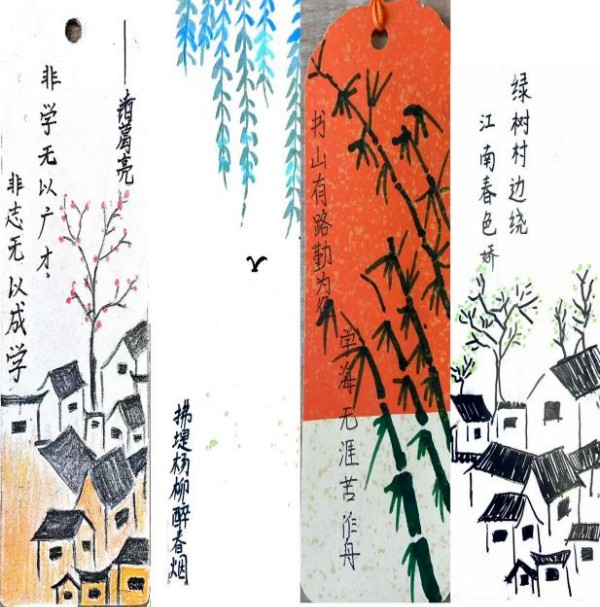 非学无以广才,
非志无以成学
——诸葛亮
拂堤杨柳醉春烟
书山有路勤为径
学海无涯苦作舟
绿树村边绕
江南春色娇